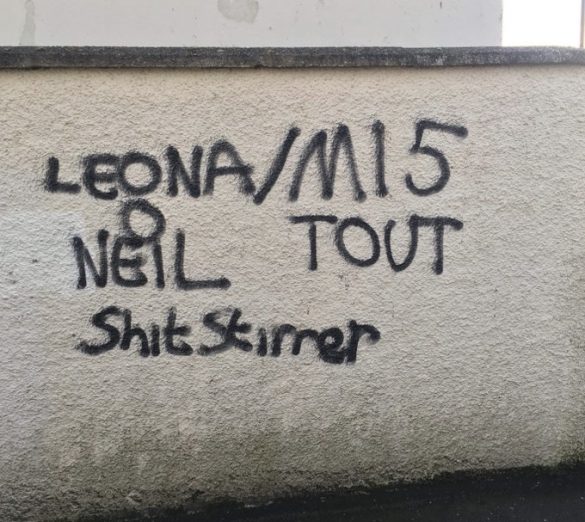 LEONA/MI5
O TOUT
NEIL
Shit Stirrer